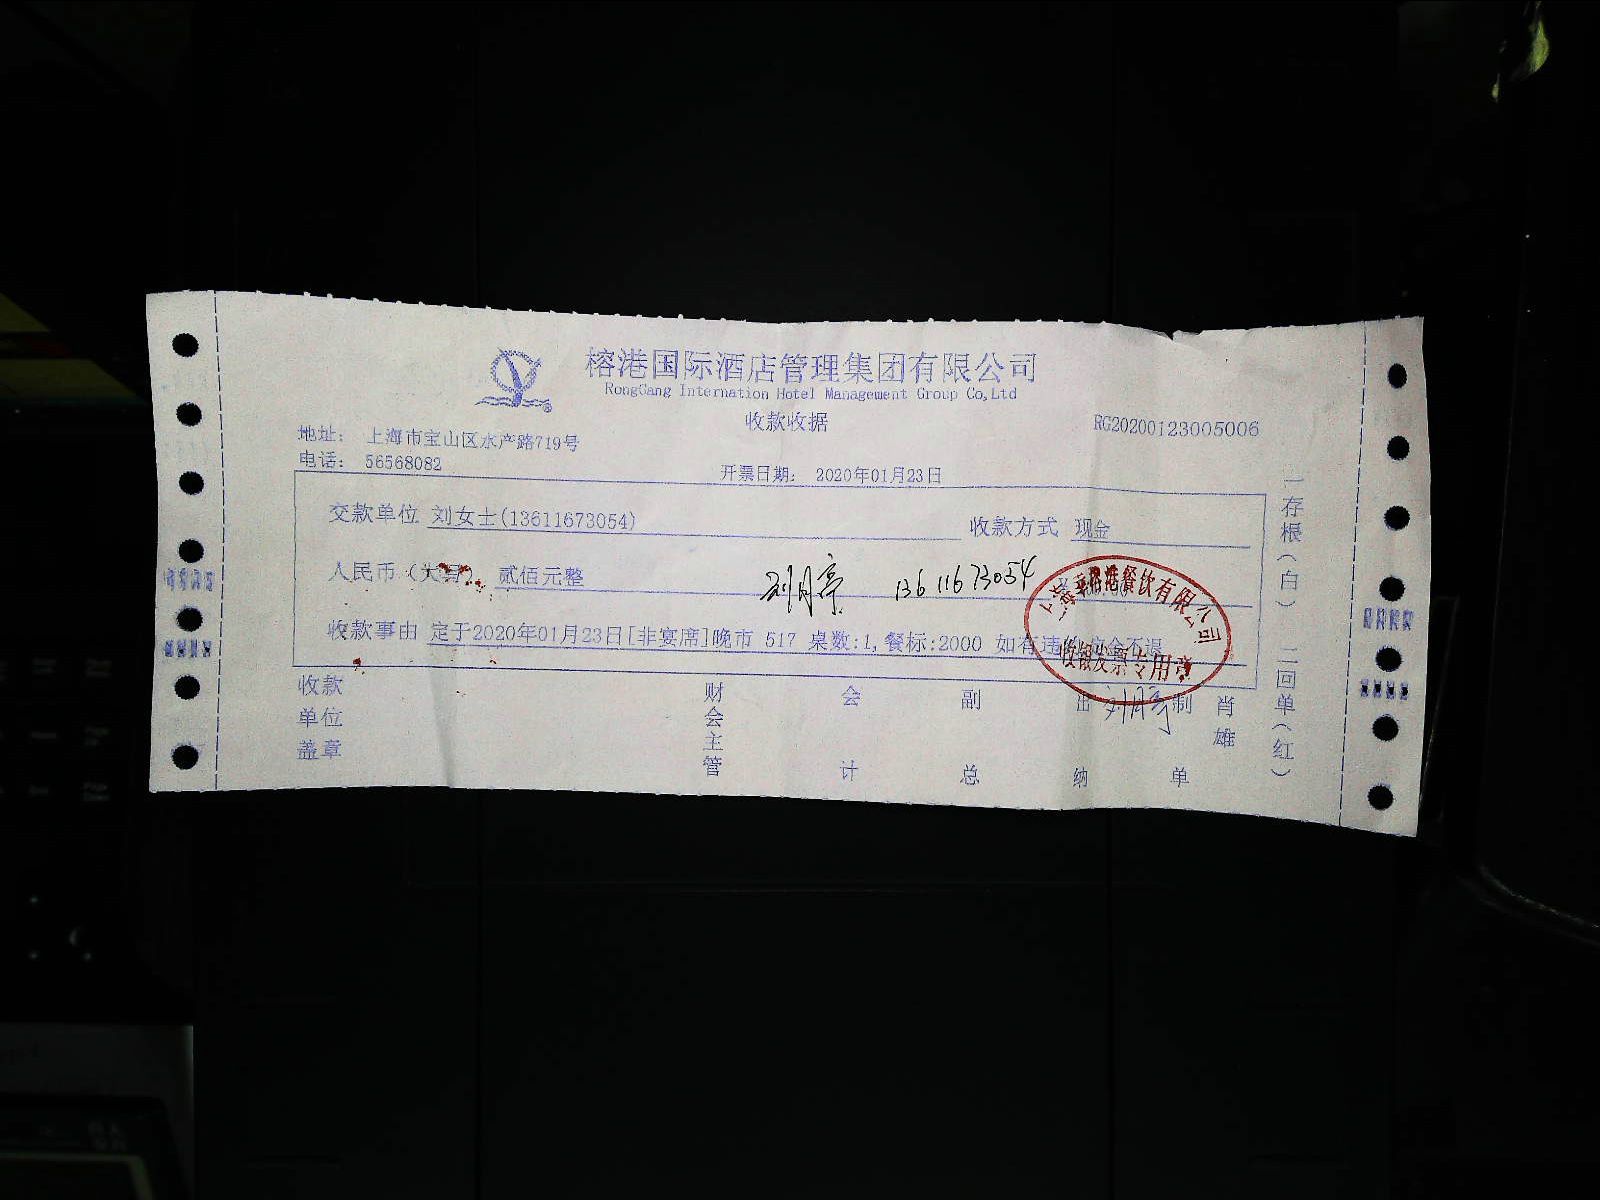 榕港国际酒店管理集团有限公司
RongGang International Hotel Management Group Co,Ltd
收款收据
RG20200123005006
地址： 上海市宝山区水产路719号
电话： 56568082
开票日期： 2020年01月23日
交款单位 刘女士(13611673054) 收款方式 现金
人民币（大写） 贰佰元整 刘月亭 13611673054
收款事由 定于2020年01月23日[非宴席]晚市 517 桌数:1,餐标:2000 如有违约,定金不退
餐饮有限公司
收银发票专用章
收款单位盖章 财会主管 会计 副总 出纳 刘月亭 制单 肖雄
一存根（白） 二回单（红）